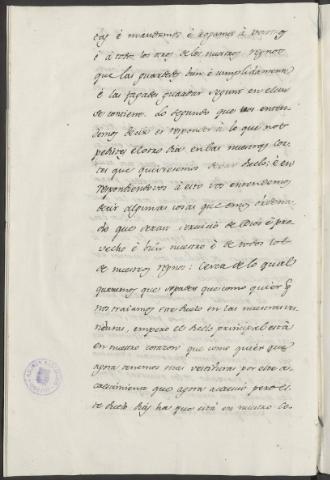 das é mandamos é rogamos à vosotros
é à todos los otros de los nuestros regnos
que las guardedes bien é cumplidamente
é las fagades guardar segunt en ellas
se contiene. Lo segundo que vos enten-
demos decir es responder à lo que nos
pedistes el otro dia en las nuestras cor-
tes que quisiesemos dexar duelo: é en
respondiendovos à esto vos entendemos
decir algunas cosas que avemos ordena-
do que seran servicio de Dios é pro-
vecho é bien nuestro é de todos los
de nuestros regnos: Cerca de lo qual
queremos que sepades que como quier q
nos traiamos este duelo en las nuestras vesti-
duras, empero el duelo principal está
en nuestro corazon que como quier que
agora tenemos mas vestiduras por este a-
caescimiento que agora acaesció pero es-
te duelo dias ha que está en nuestro co-